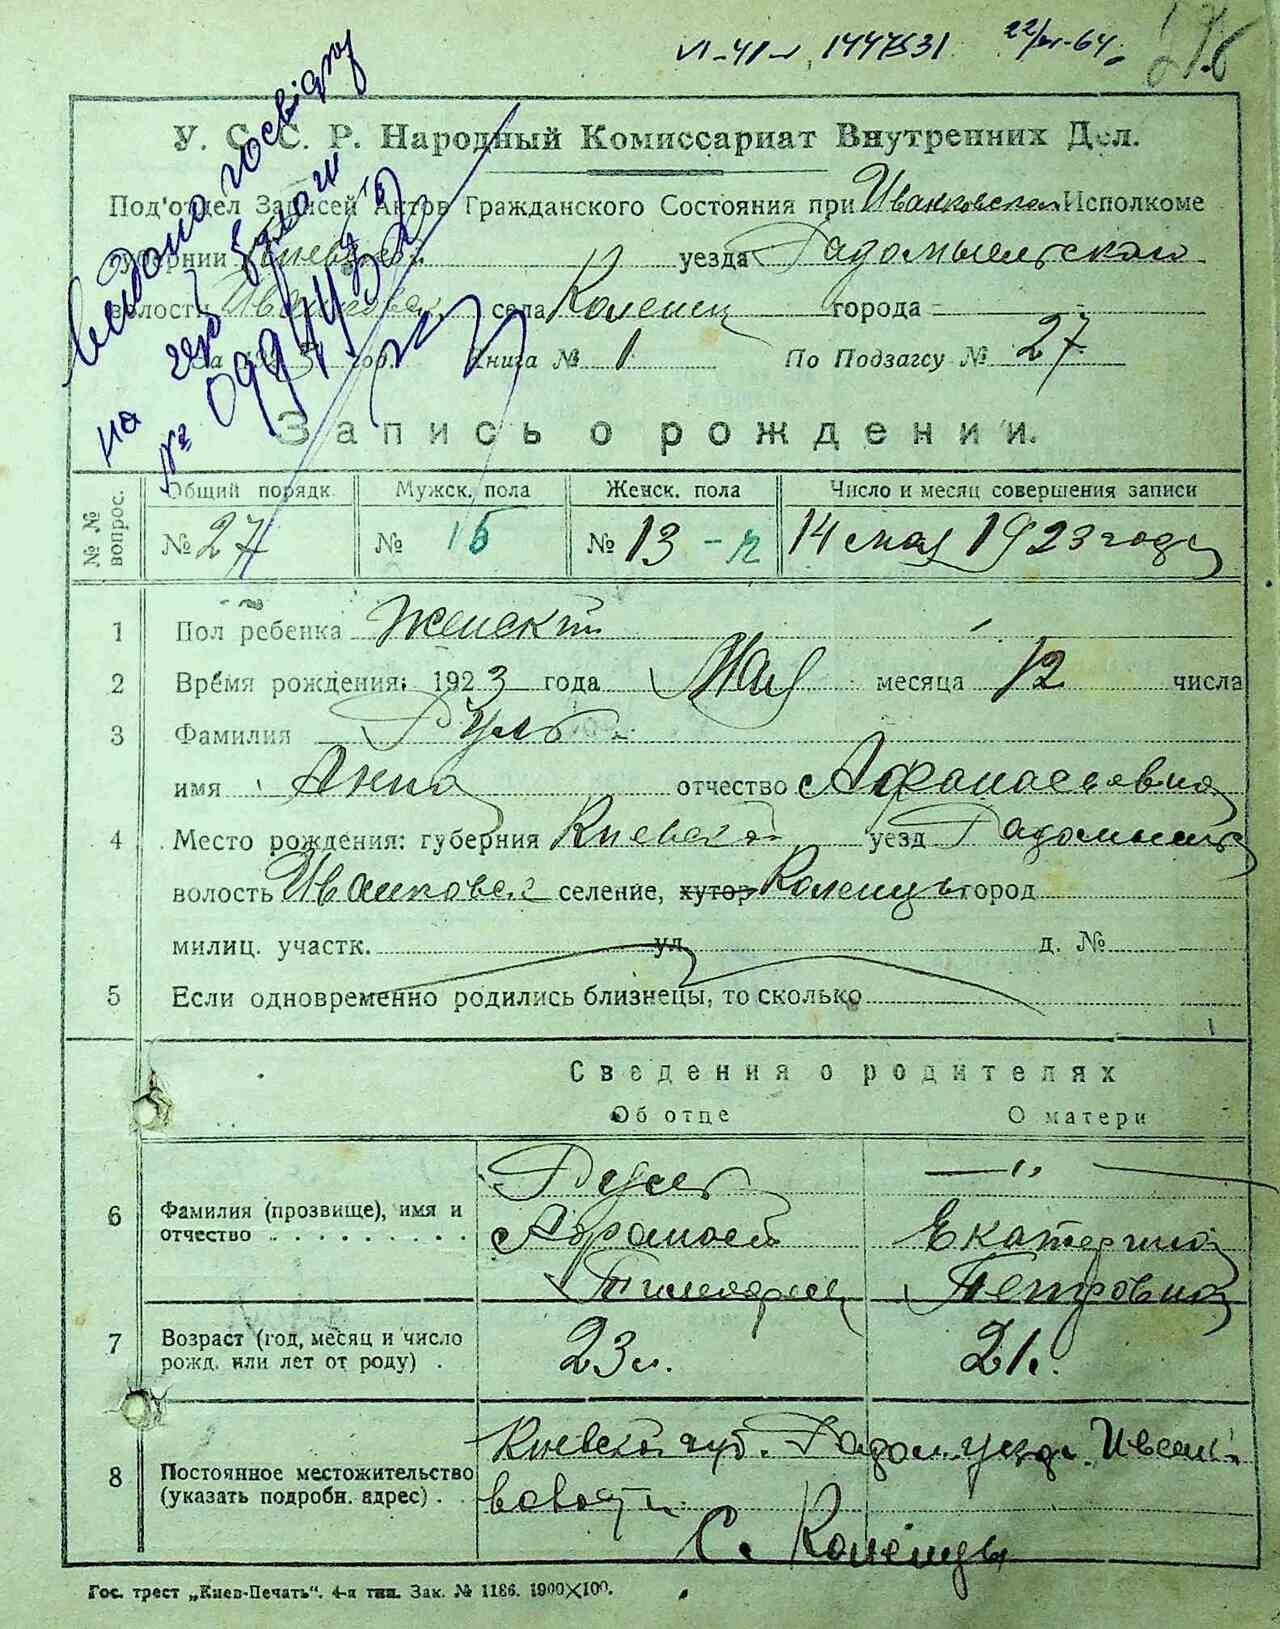 VI-41 1447531 22/VI-64.
У. С. С. Р. Народный Комиссариат Внутренних Дел.
Под'отдел Записей Актов Гражданского Состояния при Иванковском Исполкоме
губернии Киевской уезда Радомысльского
волости Иванковск. села Коленцы города
за 1923 год. Книга № 1 По Подзагсу № 27
на
№ 099/1432
Запись о рождении.
№ № вопрос. Общий порядк. Мужск. пола Женск. пола Число и месяц совершения записи
№ 27 № 15 № 13 14 мая 1923 года
1 Пол ребенка Женский
2 Время рождения: 1923 года Мая месяца 12 числа
3 Фамилия Руль
имя Анна отчество Афанасьевна
4 Место рождения: губерния Киевской уезд Радомысль
волость Иванковск селение, хутор Коленцы город
милиц. участк. ул. д. №
5 Если одновременно родились близнецы, то сколько
Сведения о родителях
Об отце О матери
6 Фамилия (прозвище), имя и отчество . . . . . . . . .
Руль — " —
Афанасий Екатерина
Петровна
7 Возраст (год, месяц и число рожд. или лет от роду) .
23 л. 21 л.
8 Постоянное местожительство (указать подробн. адрес) . .
Киевской губ. Радом. уезда. Иванк.
волости
С. Коленцы
Гос. трест „Киев-Печать“. 4-я тип. Зак. № 1186. 1900×100.